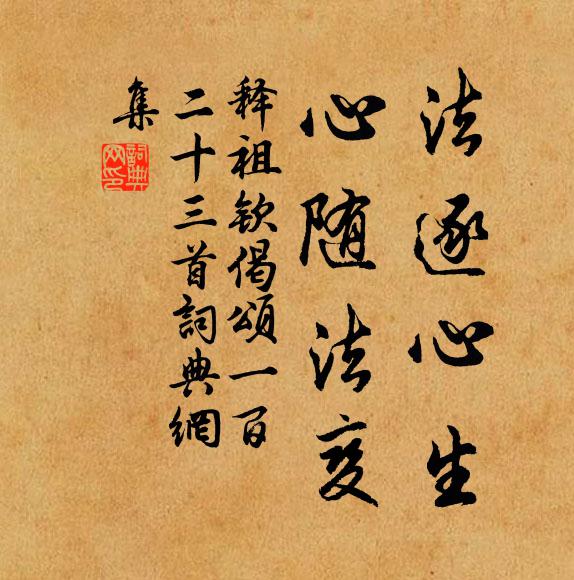 法逐心生
心随法变
释祖钦偈颂一百
二十三首詞典網
集
詞典
网印